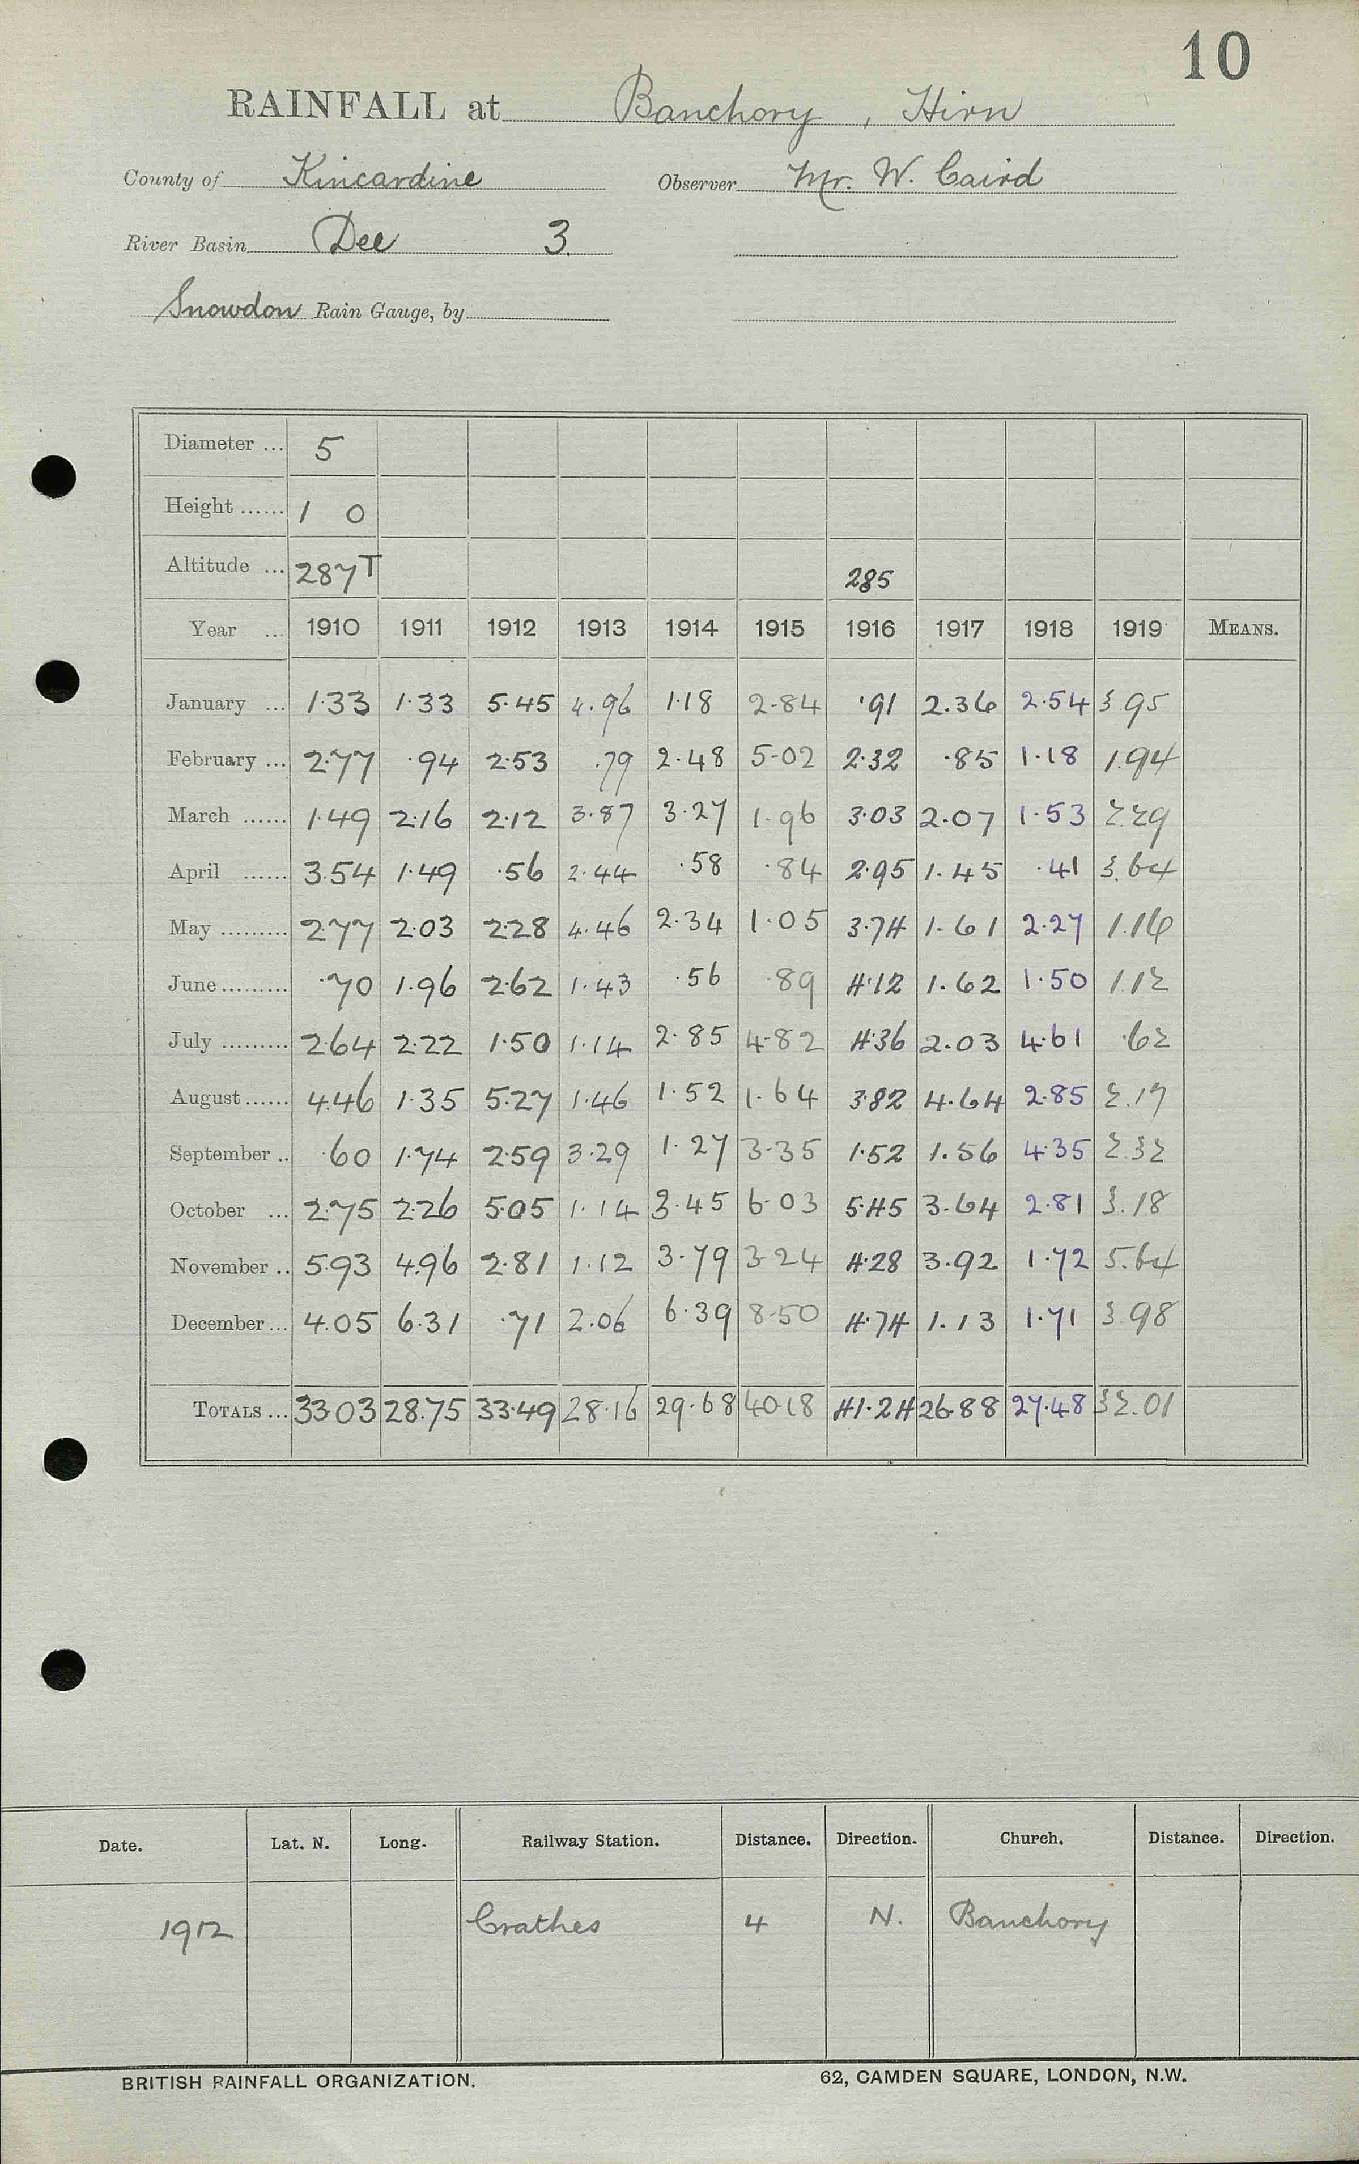 10
RAINFALL at Banchory, Hirn
County of Kincardine Observer Mr. W. Caird
River Basin Dee 3.
Snowdon Rain Gauge, by
Diameter ... 5
Height ...... 1 0
Altitude ... 287T 285
Year ... 1910 1911 1912 1913 1914 1915 1916 1917 1918 1919 MEANS.
January ... 1.33 1.33 5.45 4.96 1.18 2.84 .91 2.36 2.54 3.95
February ... 2.77 .94 2.53 .79 2.48 5.02 2.32 .85 1.18 1.94
March ...... 1.49 2.16 2.12 3.87 3.27 1.96 3.03 2.07 1.53 2.29
April ...... 3.54 1.49 .56 2.44 .58 .84 2.95 1.45 .41 3.64
May ......... 2.77 2.03 2.28 4.46 2.34 1.05 3.74 1.61 2.27 1.16
June ......... .70 1.96 2.62 1.43 .56 .89 4.12 1.62 1.50 1.12
July ......... 2.64 2.22 1.50 1.14 2.85 4.82 4.36 2.03 4.61 .62
August ...... 4.46 1.35 5.27 1.46 1.52 1.64 3.82 4.64 2.85 2.17
September .. .60 1.74 2.59 3.29 1.27 3.35 1.52 1.56 4.35 2.32
October ... 2.75 2.26 5.05 1.14 3.45 6.03 5.45 3.64 2.81 3.18
November .. 5.93 4.96 2.81 1.12 3.79 3.24 4.28 3.92 1.72 5.64
December ... 4.05 6.31 .71 2.06 6.39 8.50 4.74 1.13 1.71 3.98
TOTALS ... 33.03 28.75 33.49 28.16 29.68 40.18 41.24 26.88 27.48 32.01
Date. Lat. N. Long. Railway Station. Distance. Direction. Church. Distance. Direction.
1912 Crathes 4 N. Banchory
BRITISH RAINFALL ORGANIZATION. 62, CAMDEN SQUARE, LONDON, N.W.